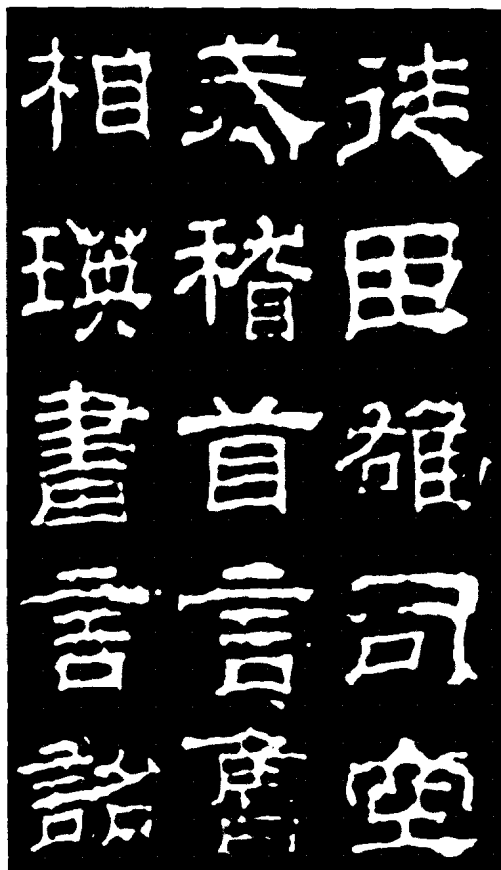 徒臣雄司空
戒稽首言魯
相瑛書言詔